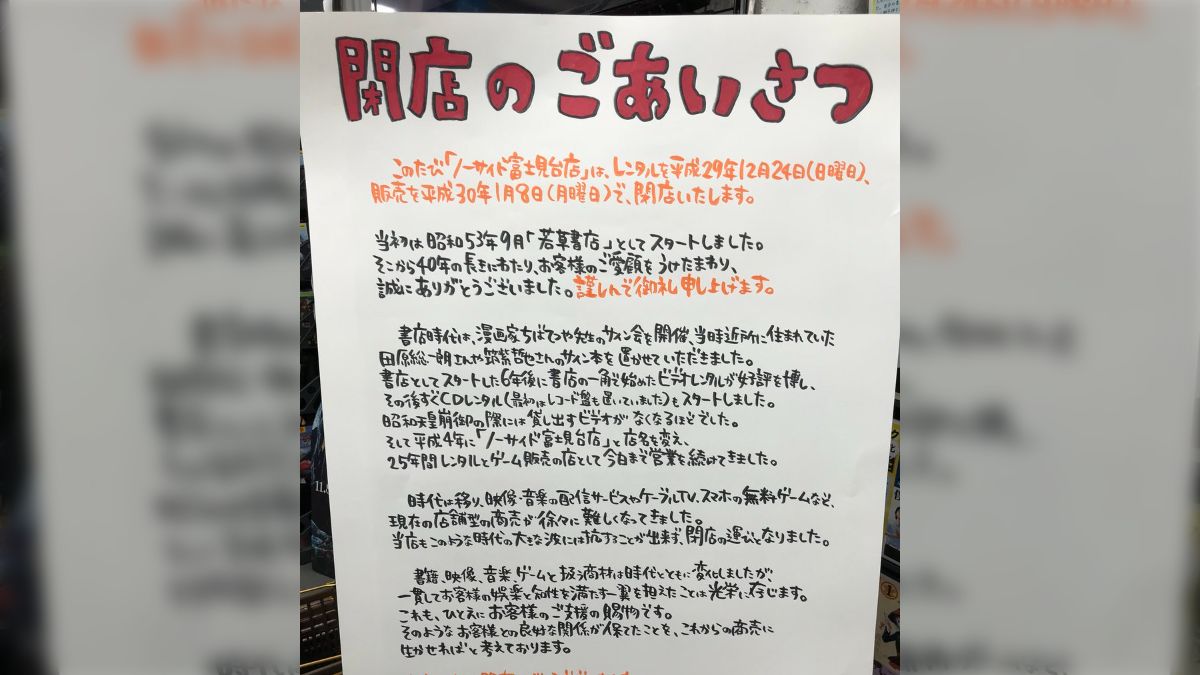 閉店のごあいさつ
このたび「ノーサイド富士見台店」は、レンタルを平成29年12月24日(日曜日)、
販売を平成30年1月8日(月曜日)で、閉店いたします。
当初は昭和53年9月「若草書店」としてスタートしました。
そこから40年の長きにわたり、お客様のご愛顧をうけたまわり、
誠にありがとうございました。謹しんで御礼申し上げます。
書店時代は、漫画家ちばてつや先生のサイン会を開催、当時近所に住まれていた
田原総一朗さんや筑紫哲也さんのサイン本を置かせていただきました。
書店としてスタートした6年後に書店の一角で始めたビデオレンタルが好評を博し、
その後すぐCDレンタル(最初はレコード盤も置いていました)をスタートしました。
昭和天皇崩御の際には貸し出すビデオがなくなるほどでした。
そして平成4年に「ノーサイド富士見台店」と店名を変え、
25年間レンタルとゲーム販売の店として今日まで営業を続けてきました。
時代は移り、映像・音楽の配信サービスやケーブルTV、スマホの無料ゲームなど、
現在の店舗型の商売が徐々に難しくなってきました。
当店もこのような時代の大きな波には抗することが出来ず、閉店の運びとなりました。
書籍、映像、音楽、ゲームと扱う商材は時代とともに変化しましたが、
一貫してお客様の娯楽と知性を満たす一翼を担えたことは光栄に存じます。
これも、ひとえにお客様のご支援の賜物です。
そのようなお客様との良好な関係が保てたことを、これからの商売に
生かせればと考えております。